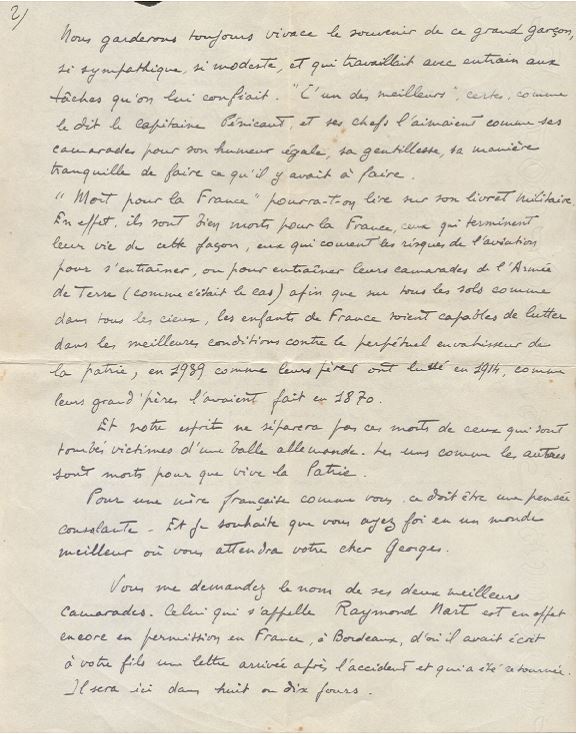 2/
Nous garderons toujours vivace le souvenir de ce grand garçon,
si sympathique, si modeste, et qui travaillait avec entrain aux
tâches qu'on lui confiait. "C'un des meilleurs", certes, comme
le dit le capitaine Pénicaut, et ses chefs l'aimaient comme ses
camarades pour son humeur égale, sa gentillesse, sa manière
tranquille de faire ce qu'il y avait à faire.
"Mort pour la France" pourra-t-on lire sur son livret militaire.
En effet, ils sont bien morts pour la France, ceux qui terminent
leur vie de cette façon, eux qui courent les risques de l'aviation
pour s'entraîner, ou pour entraîner leurs camarades de l'Armée
de Terre (comme c'était le cas) afin que sur tous les sols comme
dans tous les cieux, les enfants de France soient capables de lutter
dans les meilleures conditions contre le perpétuel envahisseur de
la patrie, en 1939 comme leurs pères ont lutté en 1914, comme
leurs grand'pères l'avaient fait en 1870.
Et notre esprit ne séparera pas ces morts de ceux qui sont
tombés victimes d'une balle allemande. Les uns comme les autres
sont morts pour que vive la Patrie.
Pour une mère française comme vous ce doit être une pensée
consolante. Et je souhaite que vous ayez foi en un monde
meilleur où vous attendra votre cher Georges.
Vous me demandez le nom de ses deux meilleurs
camarades. Celui qui s'appelle Raymond est en effet
encore en permission en France, à Bordeaux, d'où il avait écrit
à votre fils une lettre arrivée après l'accident et qui a été retournée.
Il sera ici dans huit ou dix jours.